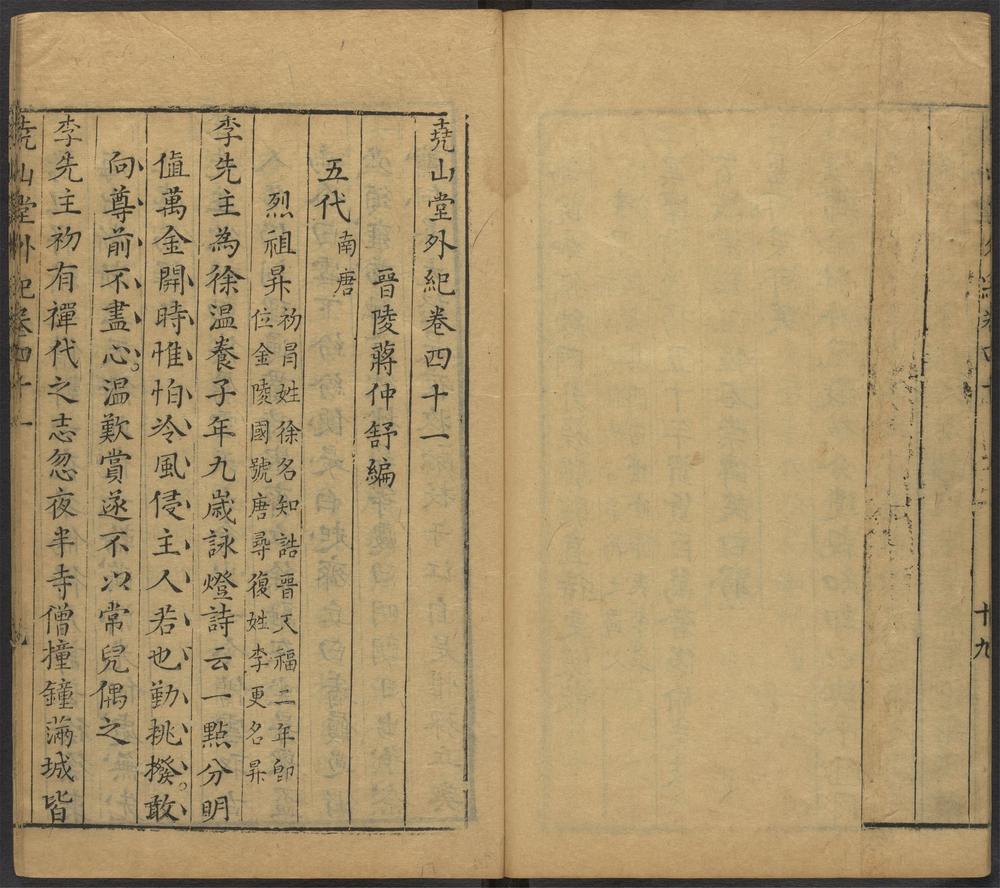 堯山堂外紀卷四十一
晉陵蔣仲舒編
五代南唐
烈祖昪初冒姓徐名知誥晉天福二年即
位金陵國號唐尋復姓李更名昪
李先主為徐溫養子年九歲詠燈詩云一點分明
値萬金開時惟怕冷風侵主人若也勤挑撥敢
向尊前不盡心溫歎賞遂不以常兒偶之
李先主初有禪代之志忽夜半寺僧撞鐘滿城皆
堯山堂外紀卷四十一
十九